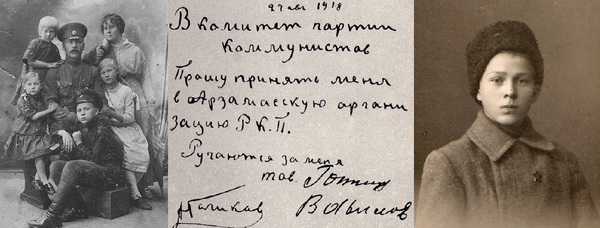 27 авг 1918
В комитет партии
коммунистов
Прошу принять меня
в Арзамасскую органи
зацию Р.К.П.
Ручаются за меня
тов Гоппиус
Вавилов
Голиков